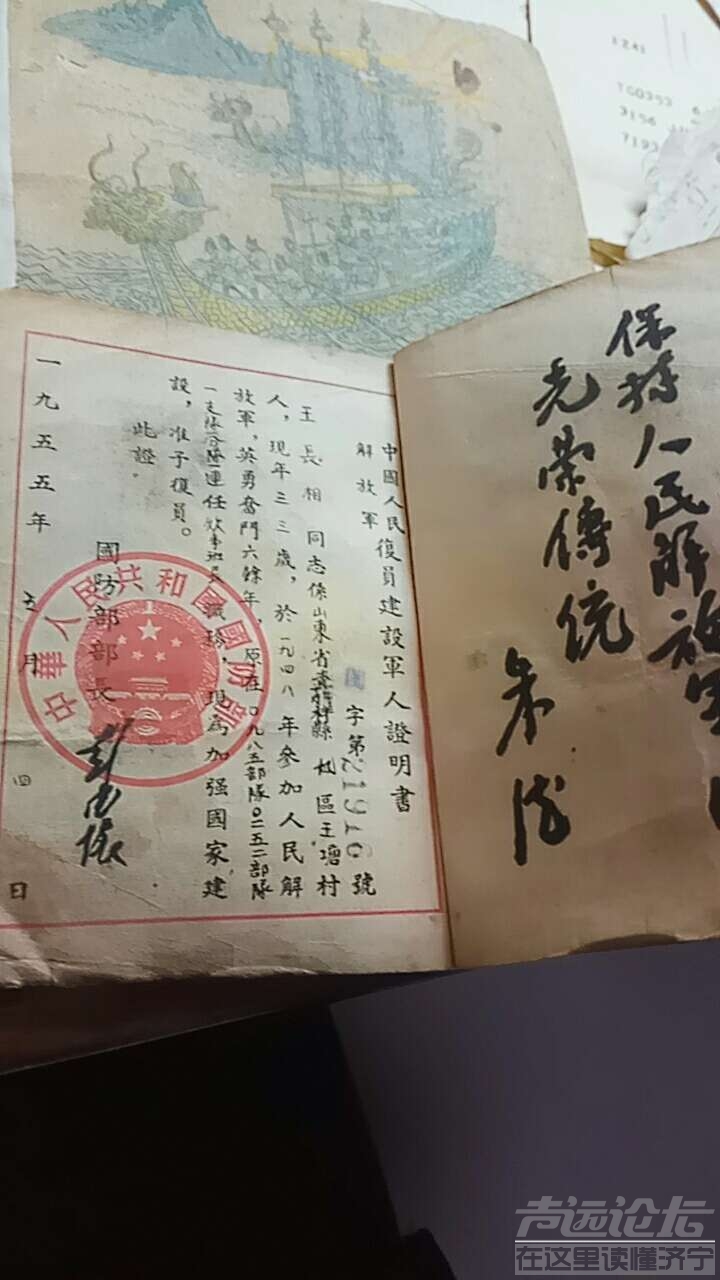 保持人民解放军
光荣傳统
朱德
中國人民
解放軍
復員建設軍人證明書
字第21916號
王長相同志係山東省嘉祥縣 區王塘村
人，現年三三歲，於一九四八年參加人民解
放軍，英勇奮鬥六餘年，原在〇九八五部隊〇二五二部隊
一支隊 連任炊事班長職務，現爲加强國家建
設，准予復員。
此證
國防部部長 彭德懷
一九五五年五月四日
中華人民共和國國防部
1241
TG0353 6
3156
7193
声远论坛
在这里读懂济宁